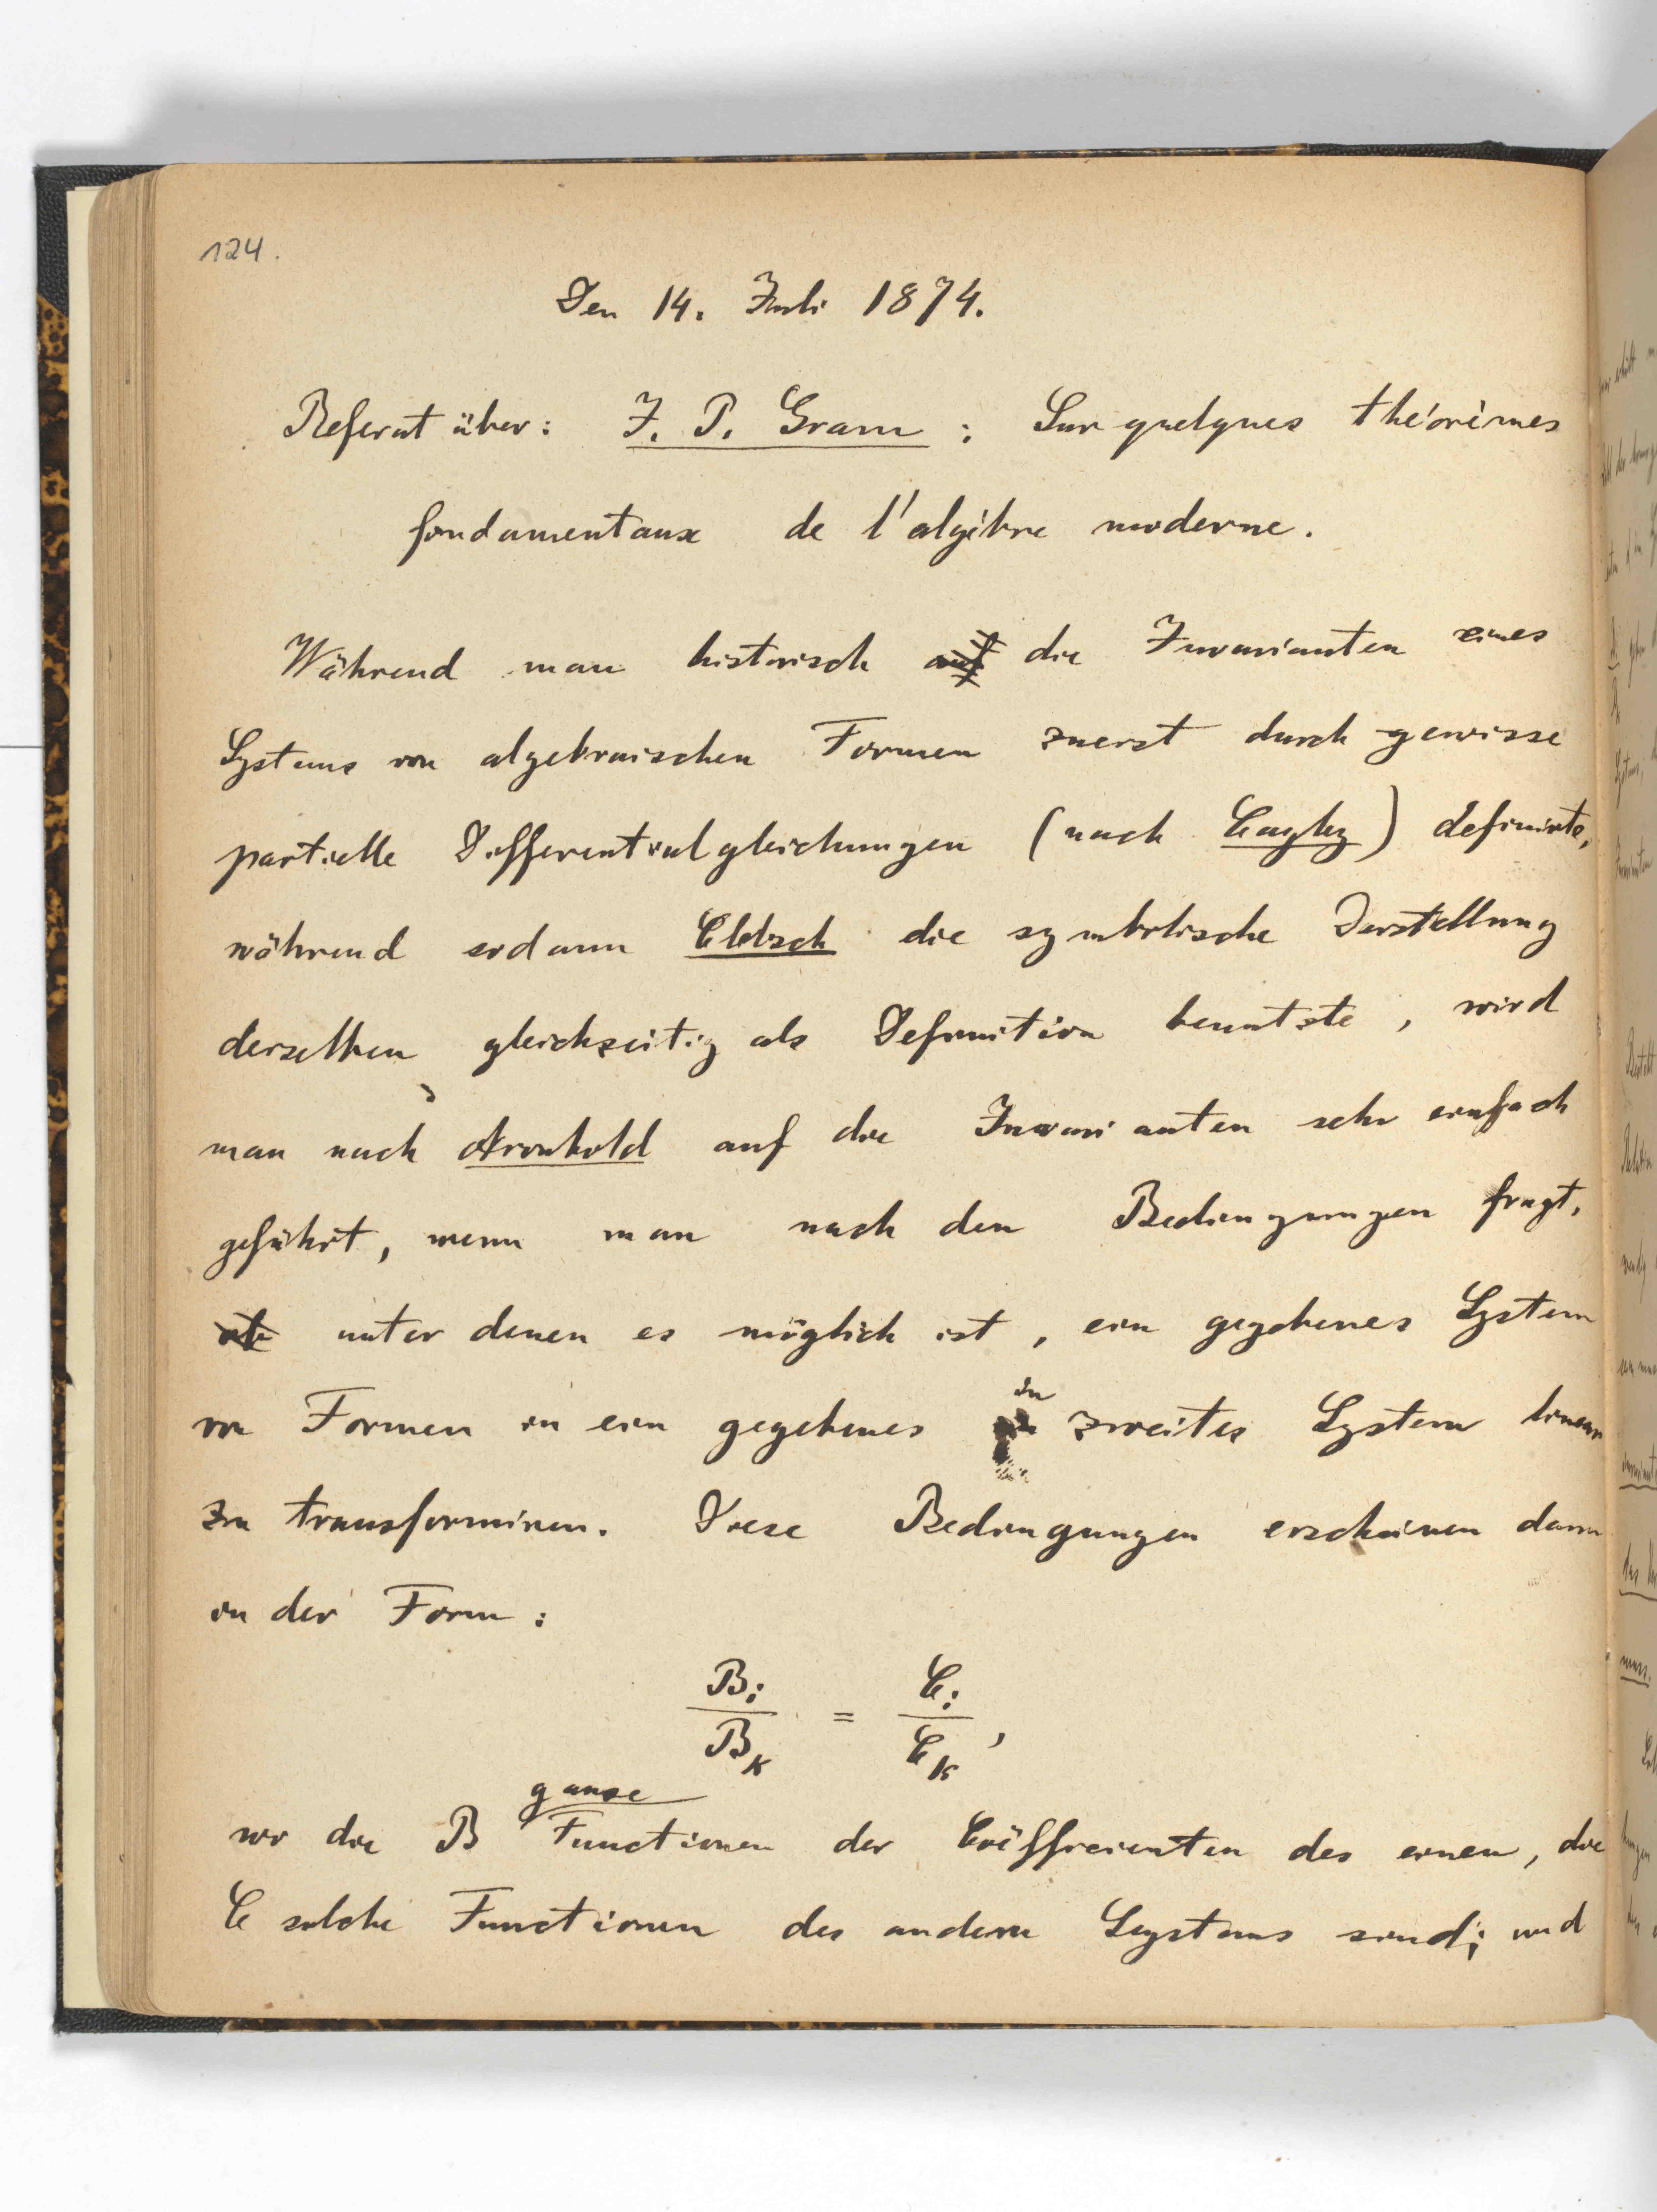 124.
Den 14. Juli 1874.
Referat über: J. P. Gram: Sur quelques théorèmes
fondamentaux de l'algèbre moderne.
Während man historisch auf die Invarianten eines
Systems von algebraischen Formen zuerst durch gewisse
partielle Differentialgleichungen (nach Cayley) definirte,
während sodann Clebsch die symbolische Darstellung
derselben gleichzeitig als Definition benutzte, wird
man nach Aronhold auf die Invarianten sehr einfach
geführt, wenn man nach den Bedingungen fragt,
ob unter denen es möglich ist, ein gegebenes System
von Formen in ein gegebenes in zweites System linear
zu transformiren. Diese Bedingungen erscheinen dann
in der Form:
B_i / B_k = C_i / C_k,
ganze
wo die B Functionen der Coëfficienten des einen, die
C solche Functionen des andern Systems sind; und